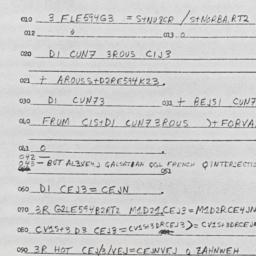 010 3 FLE594G3 = S+NU2CR / S+NORBA.RT2
012 0 013 0
020 DI CUN7 3ROUS CIJ3
021 + AROUSS+D2RE594K23.
030 DI CUN73 031 + BEJSI CUN7
040 FRUM CIS+DI CUN73ROUS )+FORVA
041 0
042 —
043 - BOT AL3VE4J GALSRTBAH QGL FRENCH Q INTERJECTIO
051
060 DI CEJ3 = CEJN.
070 3R G2LE594B2RT2 M1D21.CEJ3 = M1D2RCE4JN
080 CV1S+3 D3 CEJ3 = CV1S+3DRCEJ3) = CV1S+3DRCEJN
090 3R HOT CEJ3/VEJ = CEJNVEJ Q ZAHNWEH